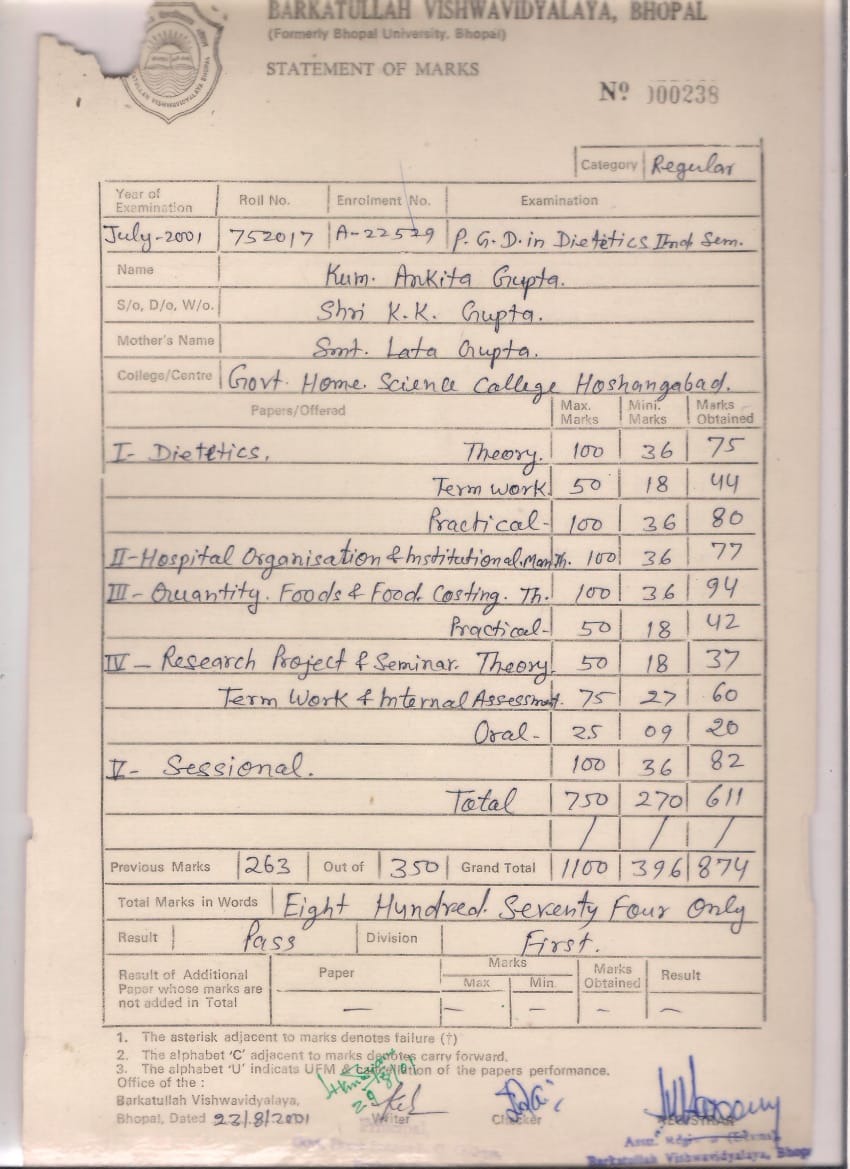 BARKATULLAH VISHWAVIDYALAYA, BHOPAL
(Formerly Bhopal University, Bhopal)
STATEMENT OF MARKS
Nº 000238
Category Regular
Year of Examination Roll No. Enrolment No. Examination
July-2001 752017 A-22529 P.G.D. in Dietetics IInd Sem.
Name Kum. Ankita Gupta.
S/o, D/o, W/o. Shri K.K. Gupta.
Mother's Name Smt. Lata Gupta.
College/Centre Govt. Home. Science College Hoshangabad.
Papers/Offered Max. Marks Mini. Marks Marks Obtained
I- Dietetics, Theory. 100 36 75
Term work 50 18 44
Practical- 100 36 80
II-Hospital Organisation & Institutional.Man Th. 100 36 77
III- Quantity. Foods & Food. Costing. Th. 100 36 94
Practical- 50 18 42
IV- Research Project & Seminar. Theory. 50 18 37
Term Work & Internal Assessment. 75 27 60
Oral- 25 09 20
V- Sessional. 100 36 82
Total 750 270 611
/ / /
Previous Marks 263 Out of 350 Grand Total 1100 396 874
Total Marks in Words Eight Hundred. Seventy Four Only
Result Pass Division First.
Result of Additional Paper whose marks are not added in Total Paper Marks Max Min. Marks Obtained Result
— — — — —
1. The asterisk adjacent to marks denotes failure (†)
2. The alphabet 'C' adjacent to marks denotes carry forward.
3. The alphabet 'U' indicats UFM & cancellation of the papers performance.
Office of the :
Barkatullah Vishwavidyalaya,
Bhopal, Dated 23/8/2001 Writer Checker REGISTRAR
29/8/01
Principal
Barkatullah Vishwavidyalaya, Bhop